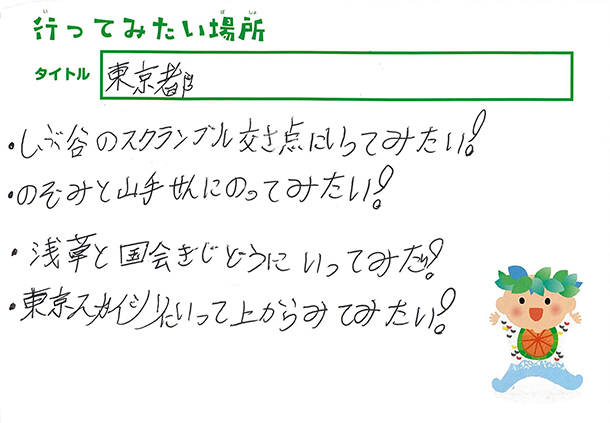 行ってみたい場所
タイトル 東京都
・しぶ谷のスクランブル交さ点にいってみたい!
・のぞみと山手せんにのってみたい!
・浅草と国会ぎじどうにいってみたい!
・東京スカイツリーにいって上からみてみたい!